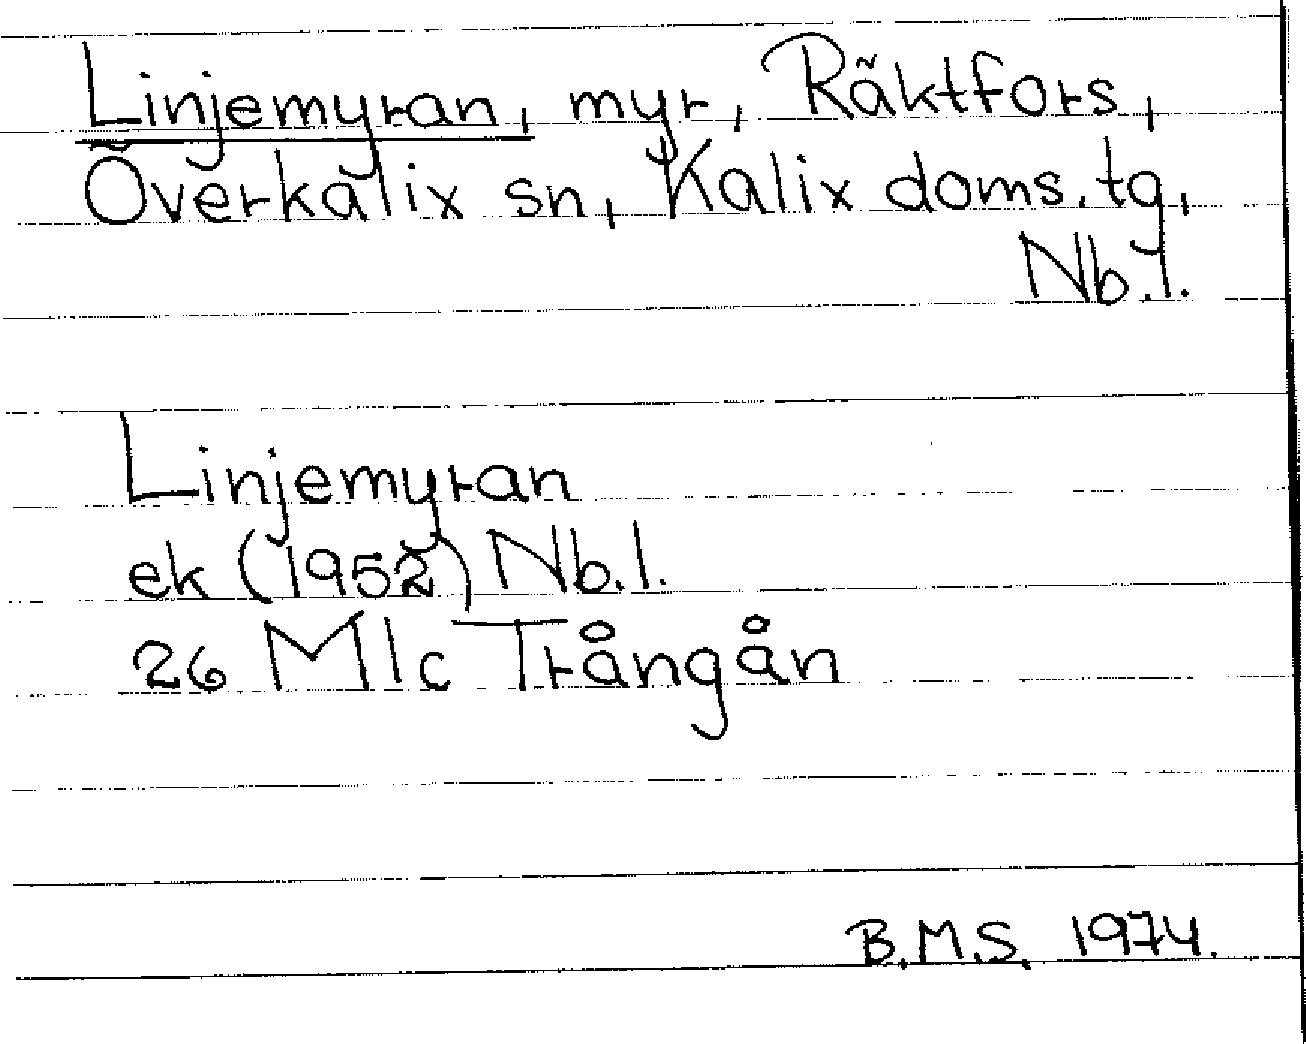 Linjemyran, myr, Räktfors,
Överkalix sn, Kalix doms. tg,
Nb. l.
Linjemyran
ek (1952) Nb. l.
26 M 1c Trångån
B.M.S. 1974.